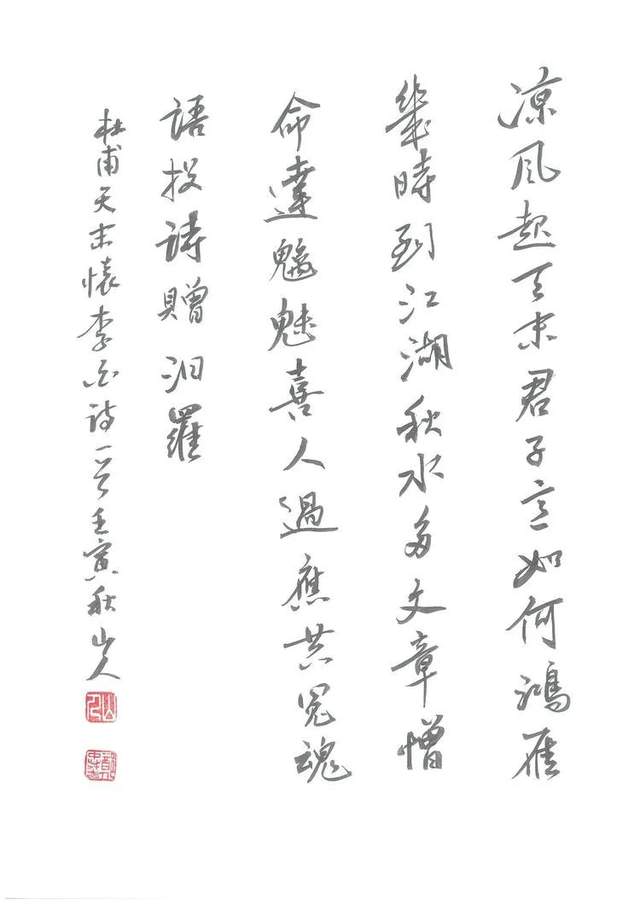 涼風起天末君子意如何鴻雁
幾時到江湖秋水多文章憎
命達魑魅喜人過應共冤魂
語投詩贈汨羅
杜甫天末懷李白詩一首壬寅秋山人
山人